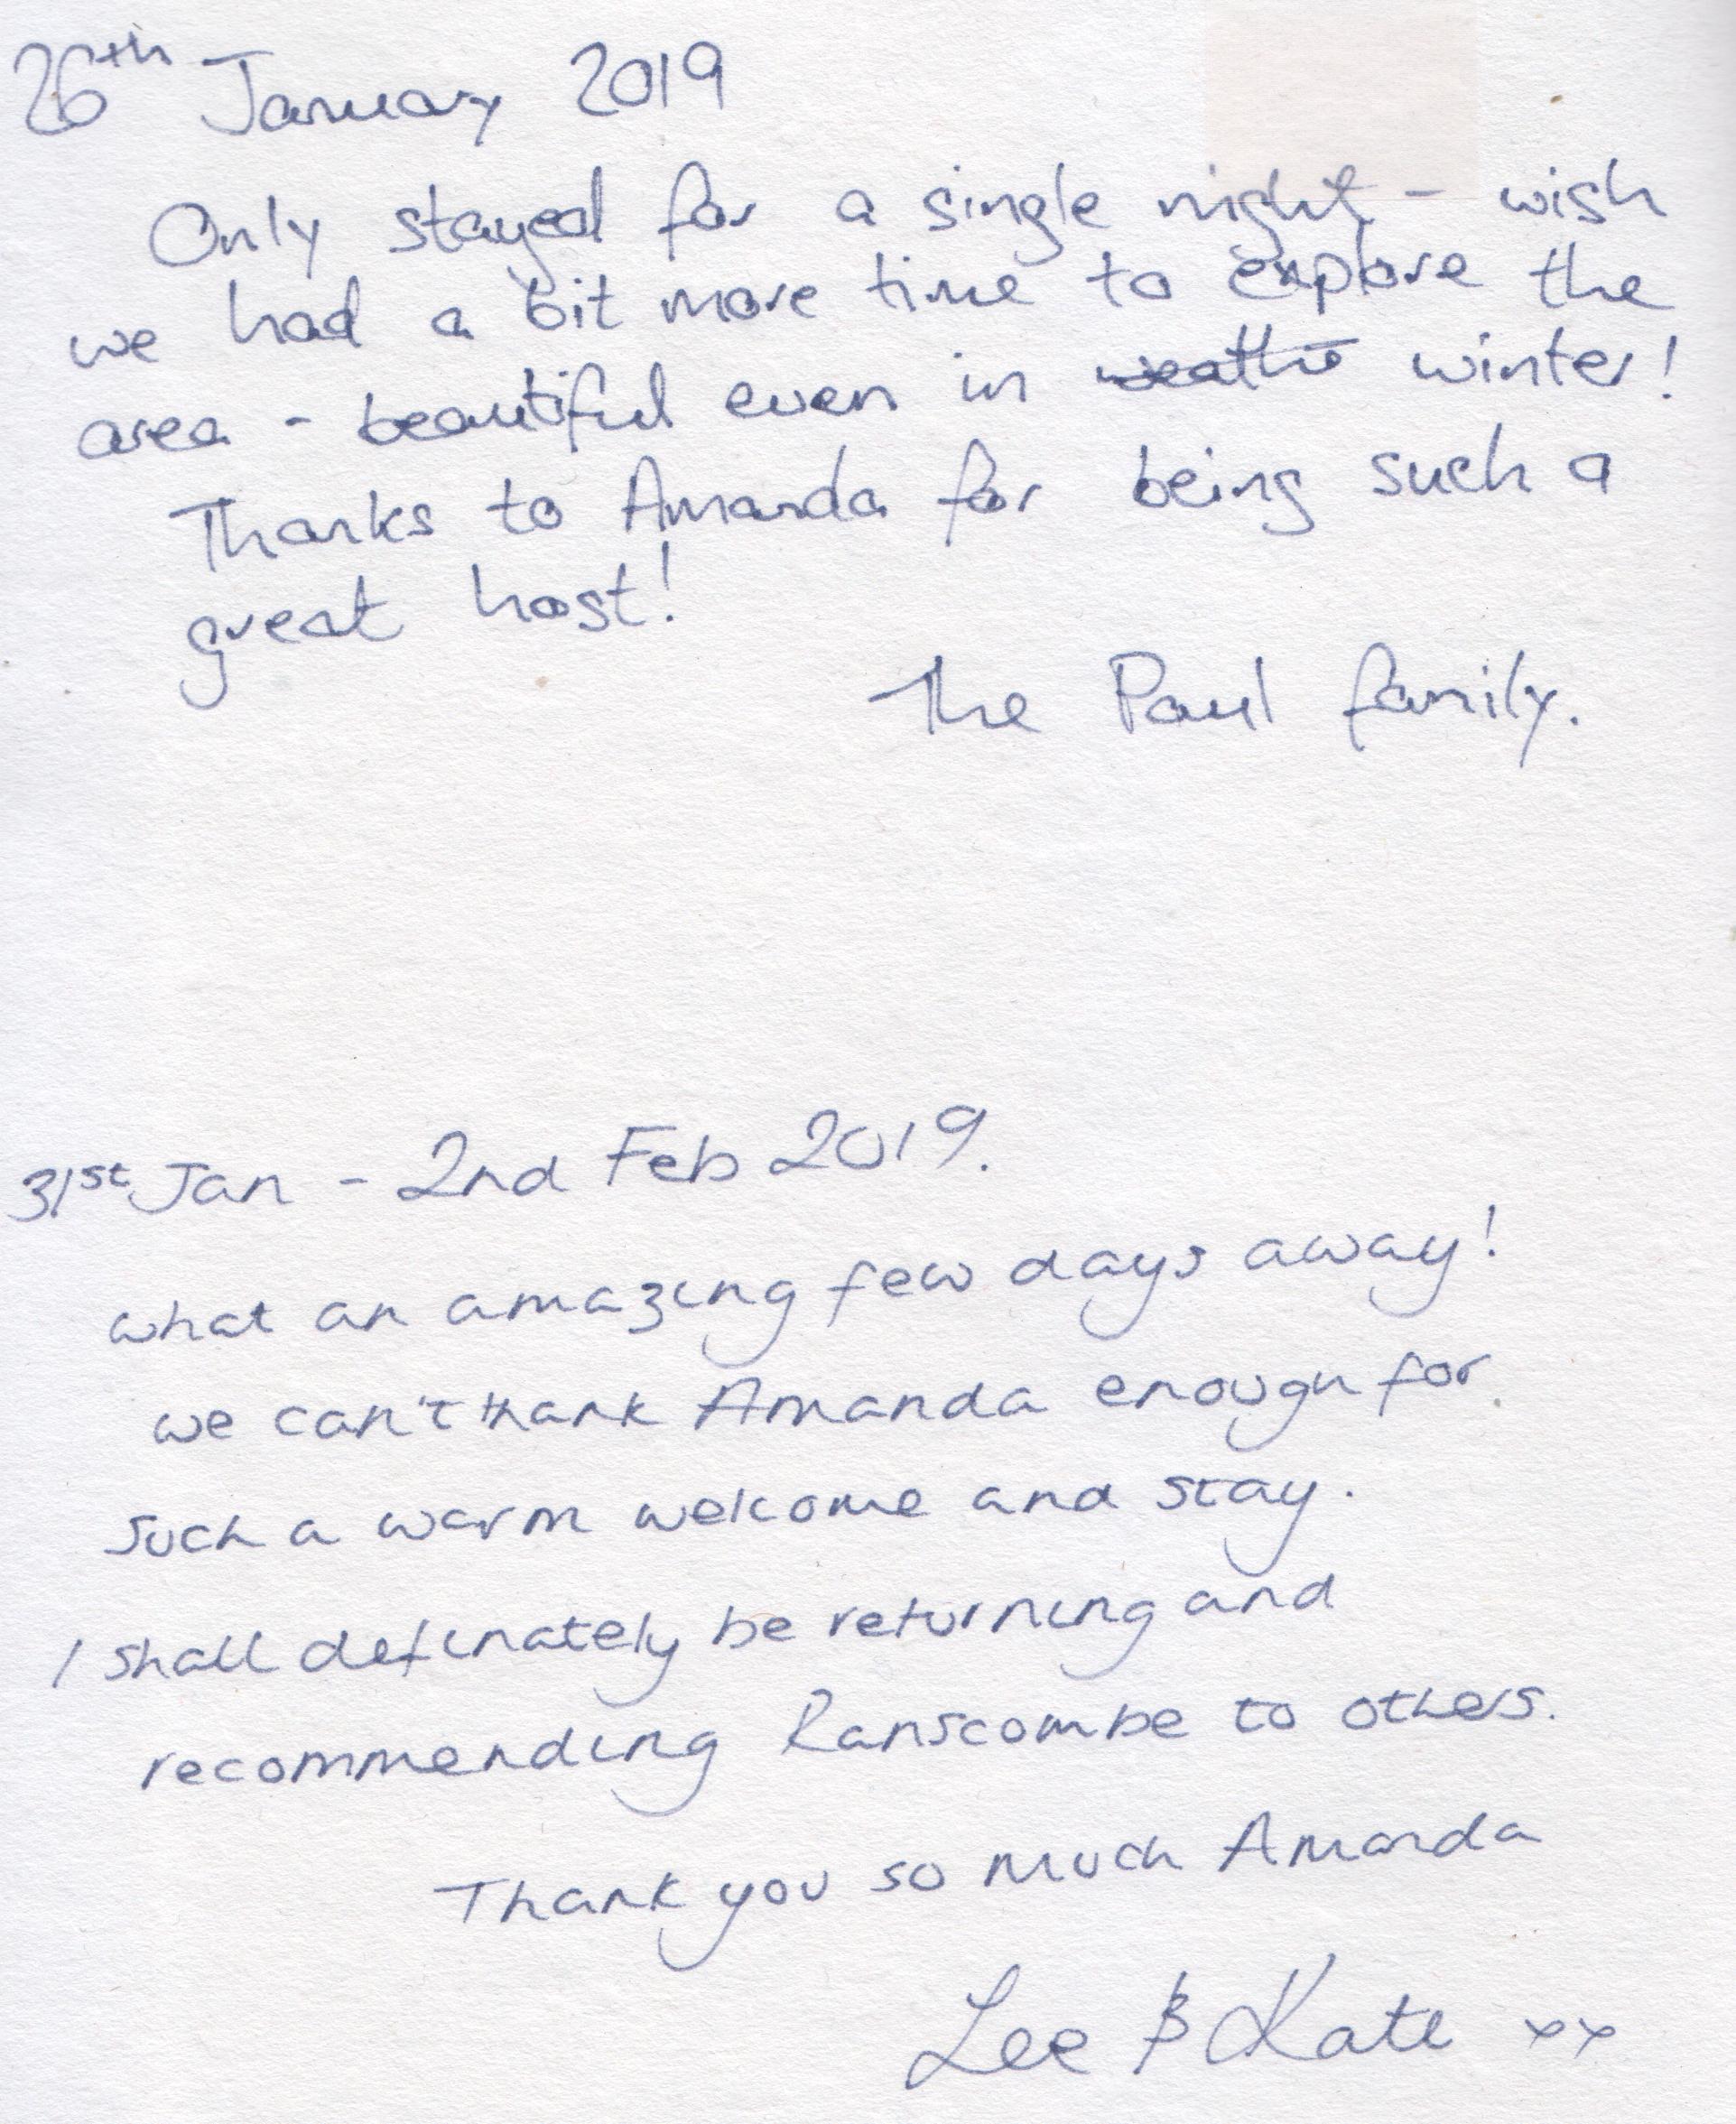 26th January 2019
Only stayed for a single night - wish
we had a bit more time to explore the
area - beautiful even in winter!
Thanks to Amanda for being such a
great host!
The Paul family.
31st Jan - 2nd Feb 2019.
what an amazing few days away!
we can't thank Amanda enough for
such a warm welcome and stay.
I shall definately be returning and
recommending Ranscombe to others.
Thank you so much Amanda
Lee & Kate xx